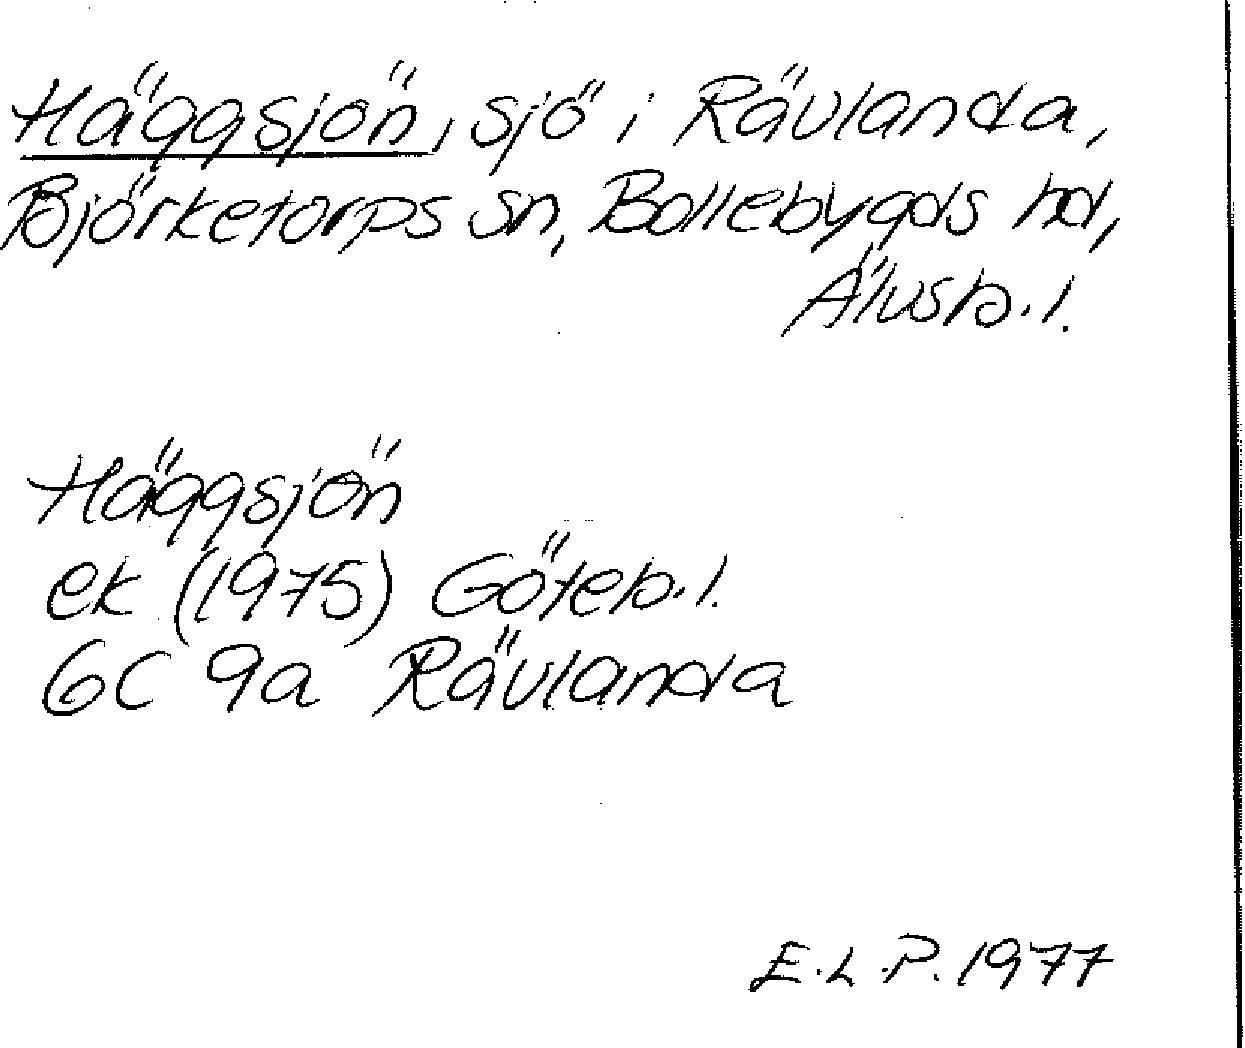 Häggsjön, sjö i Rävlanda,
Björketorps sn, Bollebygds hd,
Älvsb. l.
Häggsjön
ek (1975) Göteb. l.
6C 9a Rävlanda
E.L.P. 1977